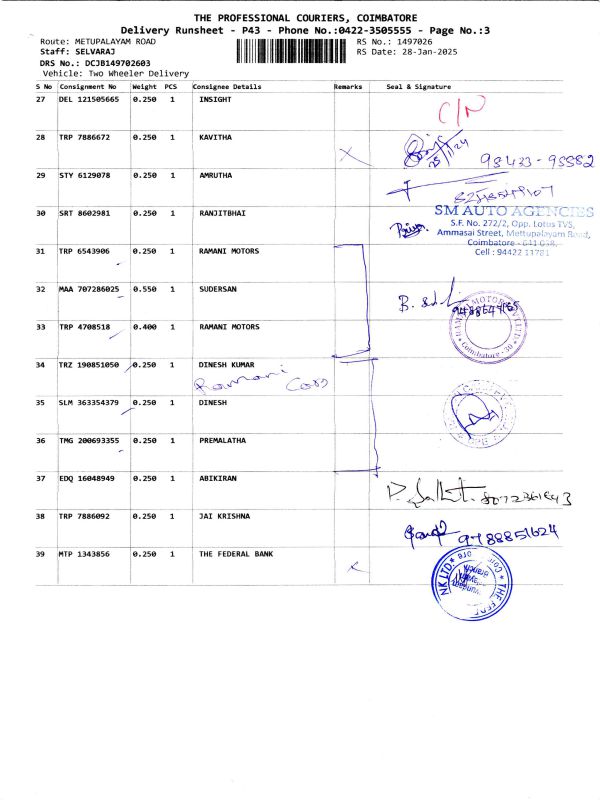 THE PROFESSIONAL COURIERS, COIMBATORE
Delivery Runsheet - P43 - Phone No.:0422-3505555 - Page No.:3
Route: METUPALAYAM ROAD RS No.: 1497026
Staff: SELVARAJ RS Date: 28-Jan-2025
DRS No.: DCJB149702603
Vehicle: Two Wheeler Delivery
S No Consignment No Weight PCS Consignee Details Remarks Seal & Signature
27 DEL 121505665 0.250 1 INSIGHT
C/N
28 TRP 7886672 0.250 1 KAVITHA
98433-98882
29 STY 6129078 0.250 1 AMRUTHA
30 SRT 8602981 0.250 1 RANJITBHAI
SM AUTO AGENCIES
S.F. No. 272/2, Opp. Lotus TVS,
Ammasai Street, Mettupalayam Road,
Coimbatore - 641 038,
Cell : 94422 11781
31 TRP 6543906 0.250 1 RAMANI MOTORS
32 MAA 707286025 0.550 1 SUDERSAN
33 TRP 4708518 0.400 1 RAMANI MOTORS
34 TRZ 190851050 0.250 1 DINESH KUMAR
Ramani Cars
35 SLM 363354379 0.250 1 DINESH
36 TMG 200693355 0.250 1 PREMALATHA
37 EDQ 16048949 0.250 1 ABIKIRAN
38 TRP 7886092 0.250 1 JAI KRISHNA
9788851624
39 MTP 1343856 0.250 1 THE FEDERAL BANK